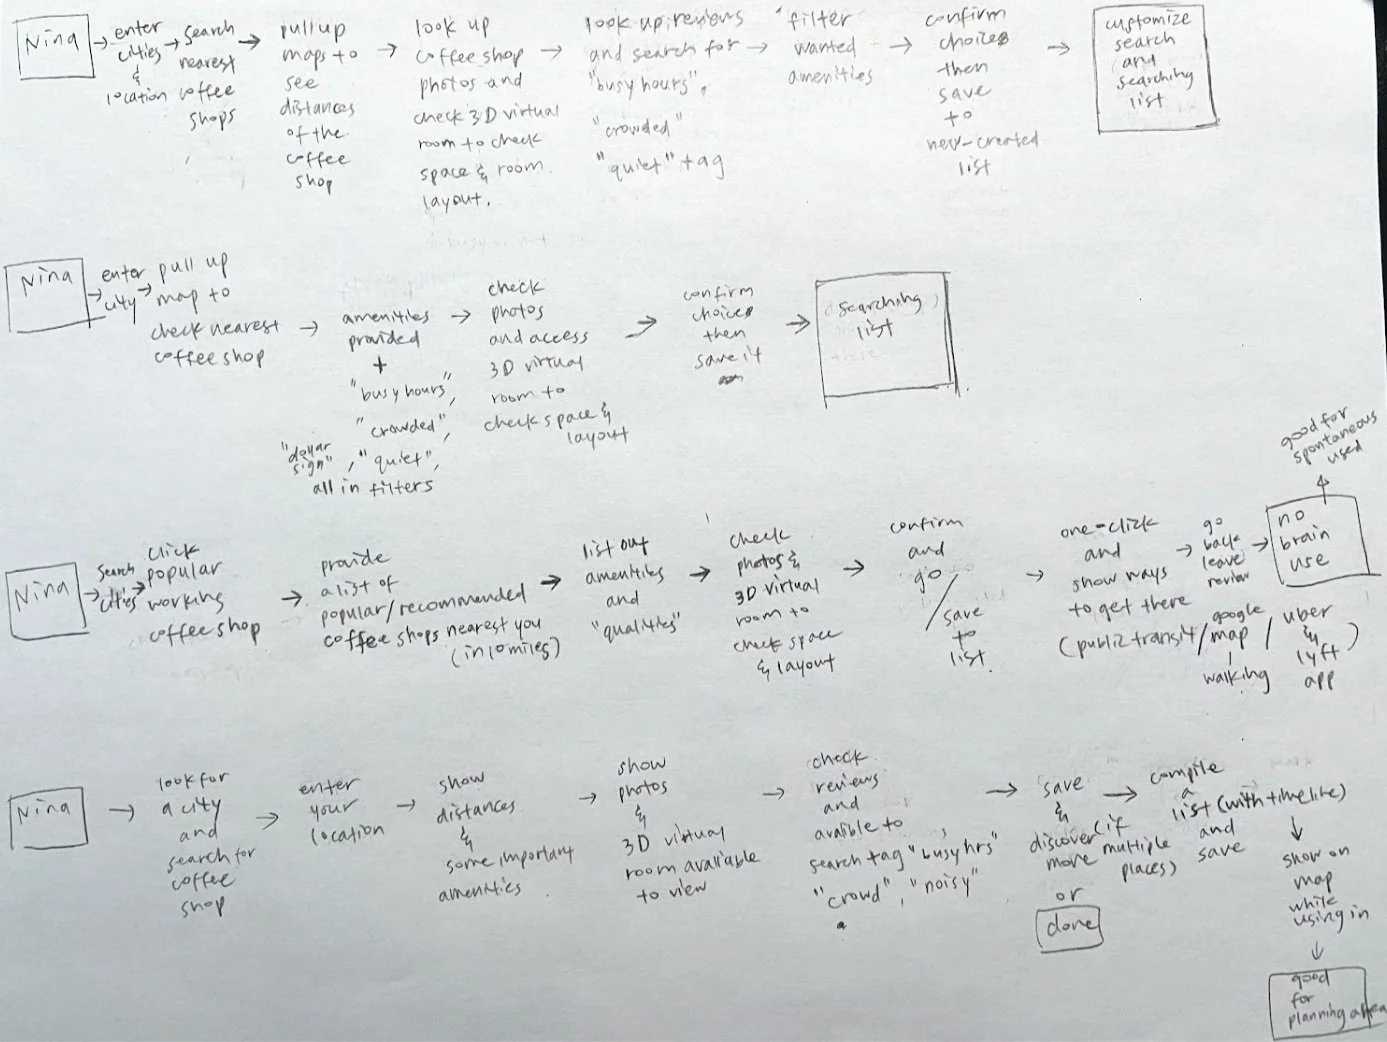 Nina
enter
cities
&
location
search
nearest
coffee
shops
pull up
maps to
see
distances
of the
coffee
shop
look up
coffee shop
photos and
check 3D virtual
room to check
space & room
layout.
look up reviews
and search for
"busy hours",
"crowded"
"quiet" tag
filter
wanted
amenities
confirm
choices
then
save
to
new-created
list
customize
search
and
searching
list
Nina
enter
city
pull up
map to
check nearest
coffee shop
amenities
provided
+
"busy hours",
"crowded",
"dollar
sign", "quiet",
all in filters
check
photos
and access
3D virtual
room to
check space &
layout
confirm
choices
then
save it
searching
list
Nina
search
cities
click
popular
working
coffee shop
provide
a list of
popular/recommended
coffee shops nearest you
(in 10 miles)
list out
amenities
and
"qualities"
check
photos &
3D virtual
room to
check space
& layout
confirm
and
go/
save
to
list
one-click
and
show ways
to get there
(public transit/
google
map
walking
/
uber
&
lyft
app)
go
back
leave
review
no
brain
use
good for
spontaneous
used
Nina
look for
a city
and
search for
coffee
shop
enter
your
location
show
distances
&
some important
amenities
show
photos
&
3D virtual
room available
to view
check
reviews
and
avalble to
search tag "busy hrs",
"crowd", "noisy"
save
&
discover
more
(if
multiple
places)
or
done
compile
a
list (with timeline)
and
save
show on
map
while
using in
good
for
planning ahea